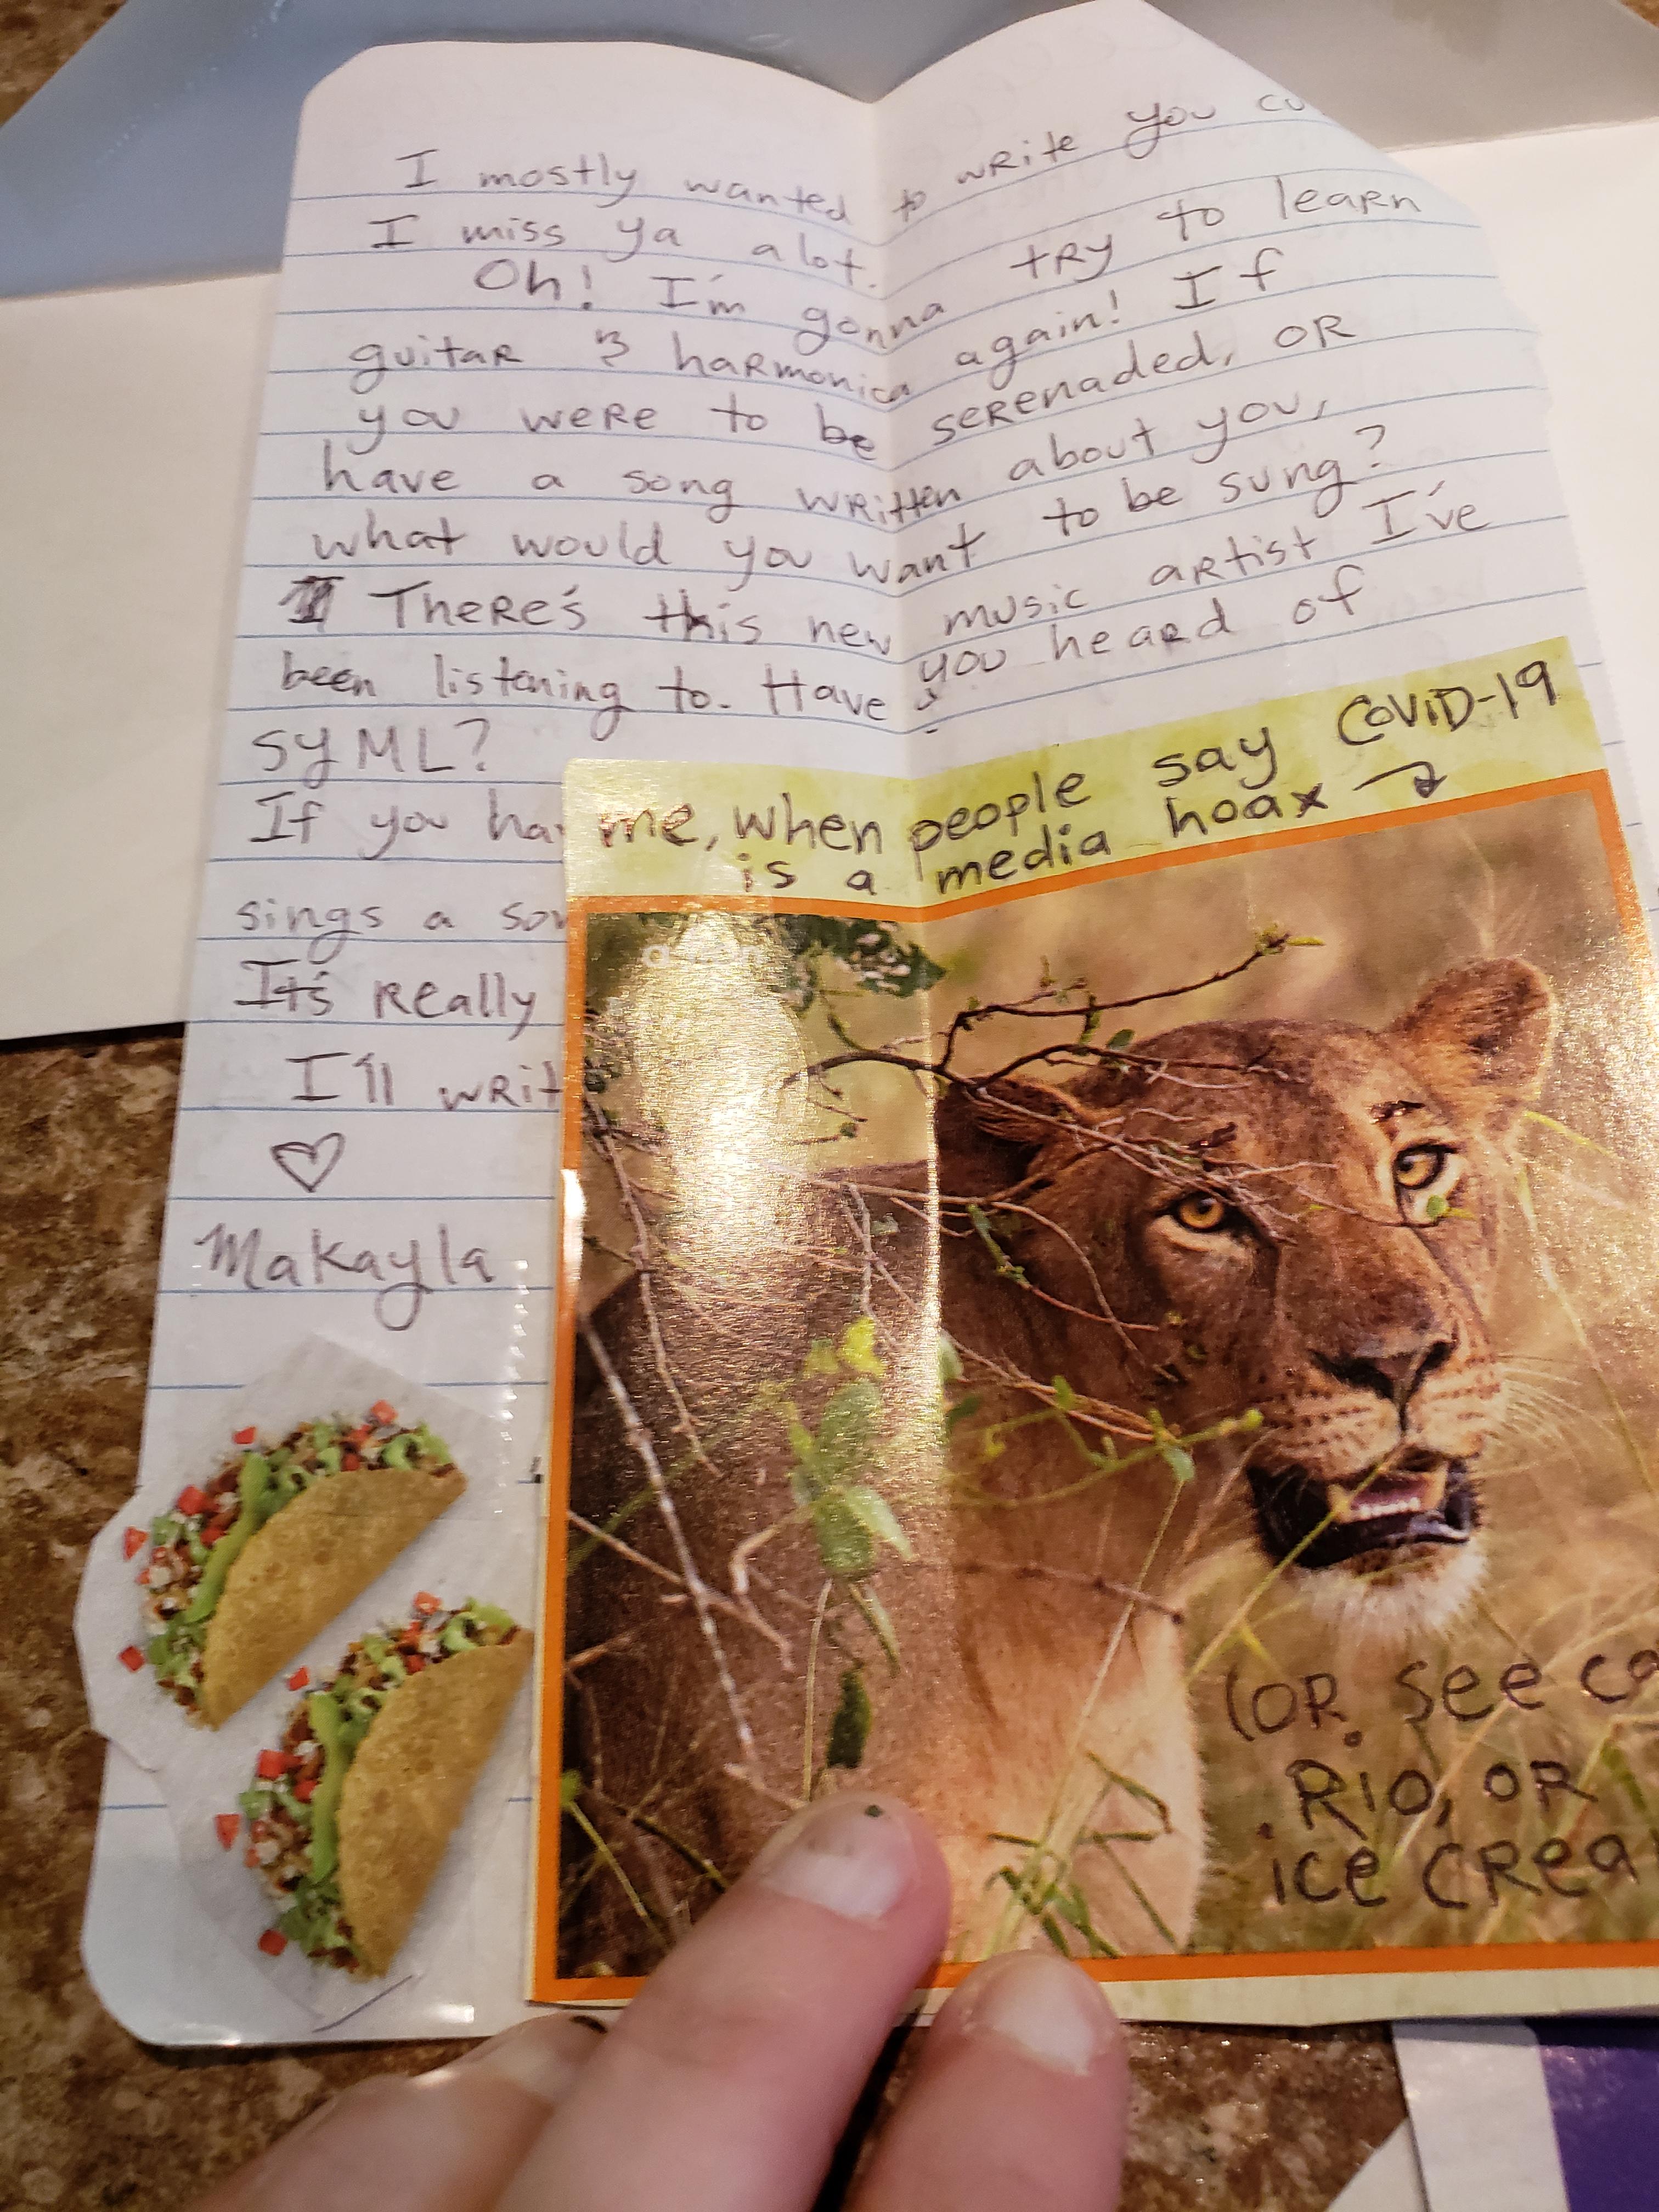 I mostly wanted to write you cu
I miss ya alot.
Oh! I'm gonna try to learn
guitar & harmonica again! If
you were to be serenaded, or
have a song written about you,
what would you want to be sung?
There's this new music artist I've
been listening to. Have you heard of
SYML?
If you ha
sings a so
It's really
I'll writ
♡
Makayla
me, when people say COVID-19
is a media hoax →
(or see ca
Rio, or
ice crea